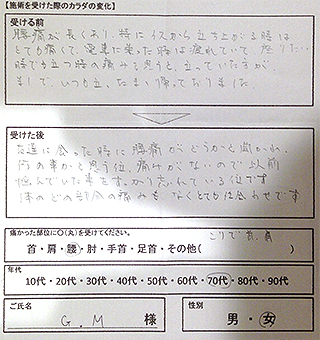 【施術を受けた際のカラダの変化】
受ける前
腰痛が長くあり、特にイスから立ち上がる時は
とても痛くて、電車に乗った時は疲れていて、座りたい
時でも立つ時の痛みを思うと、立っていた方が
まして、いつも立ったまま帰っておりました
受けた後
友達に会った時に腰痛がどうかと聞かれ、
何の事かと思う位、痛みがないので以前
悩んでいた事をすっかり忘れている位です
体のどの部分の痛みもなくとても幸わせです
痛かった部位に〇(丸)を受けてください。
こりで首、肩
首・肩・腰・肘・手首・足首・その他( )
年代
10代・20代・30代・40代・50代・60代・70代・80代・90代
ご氏名
G.M 様
性別
男・女